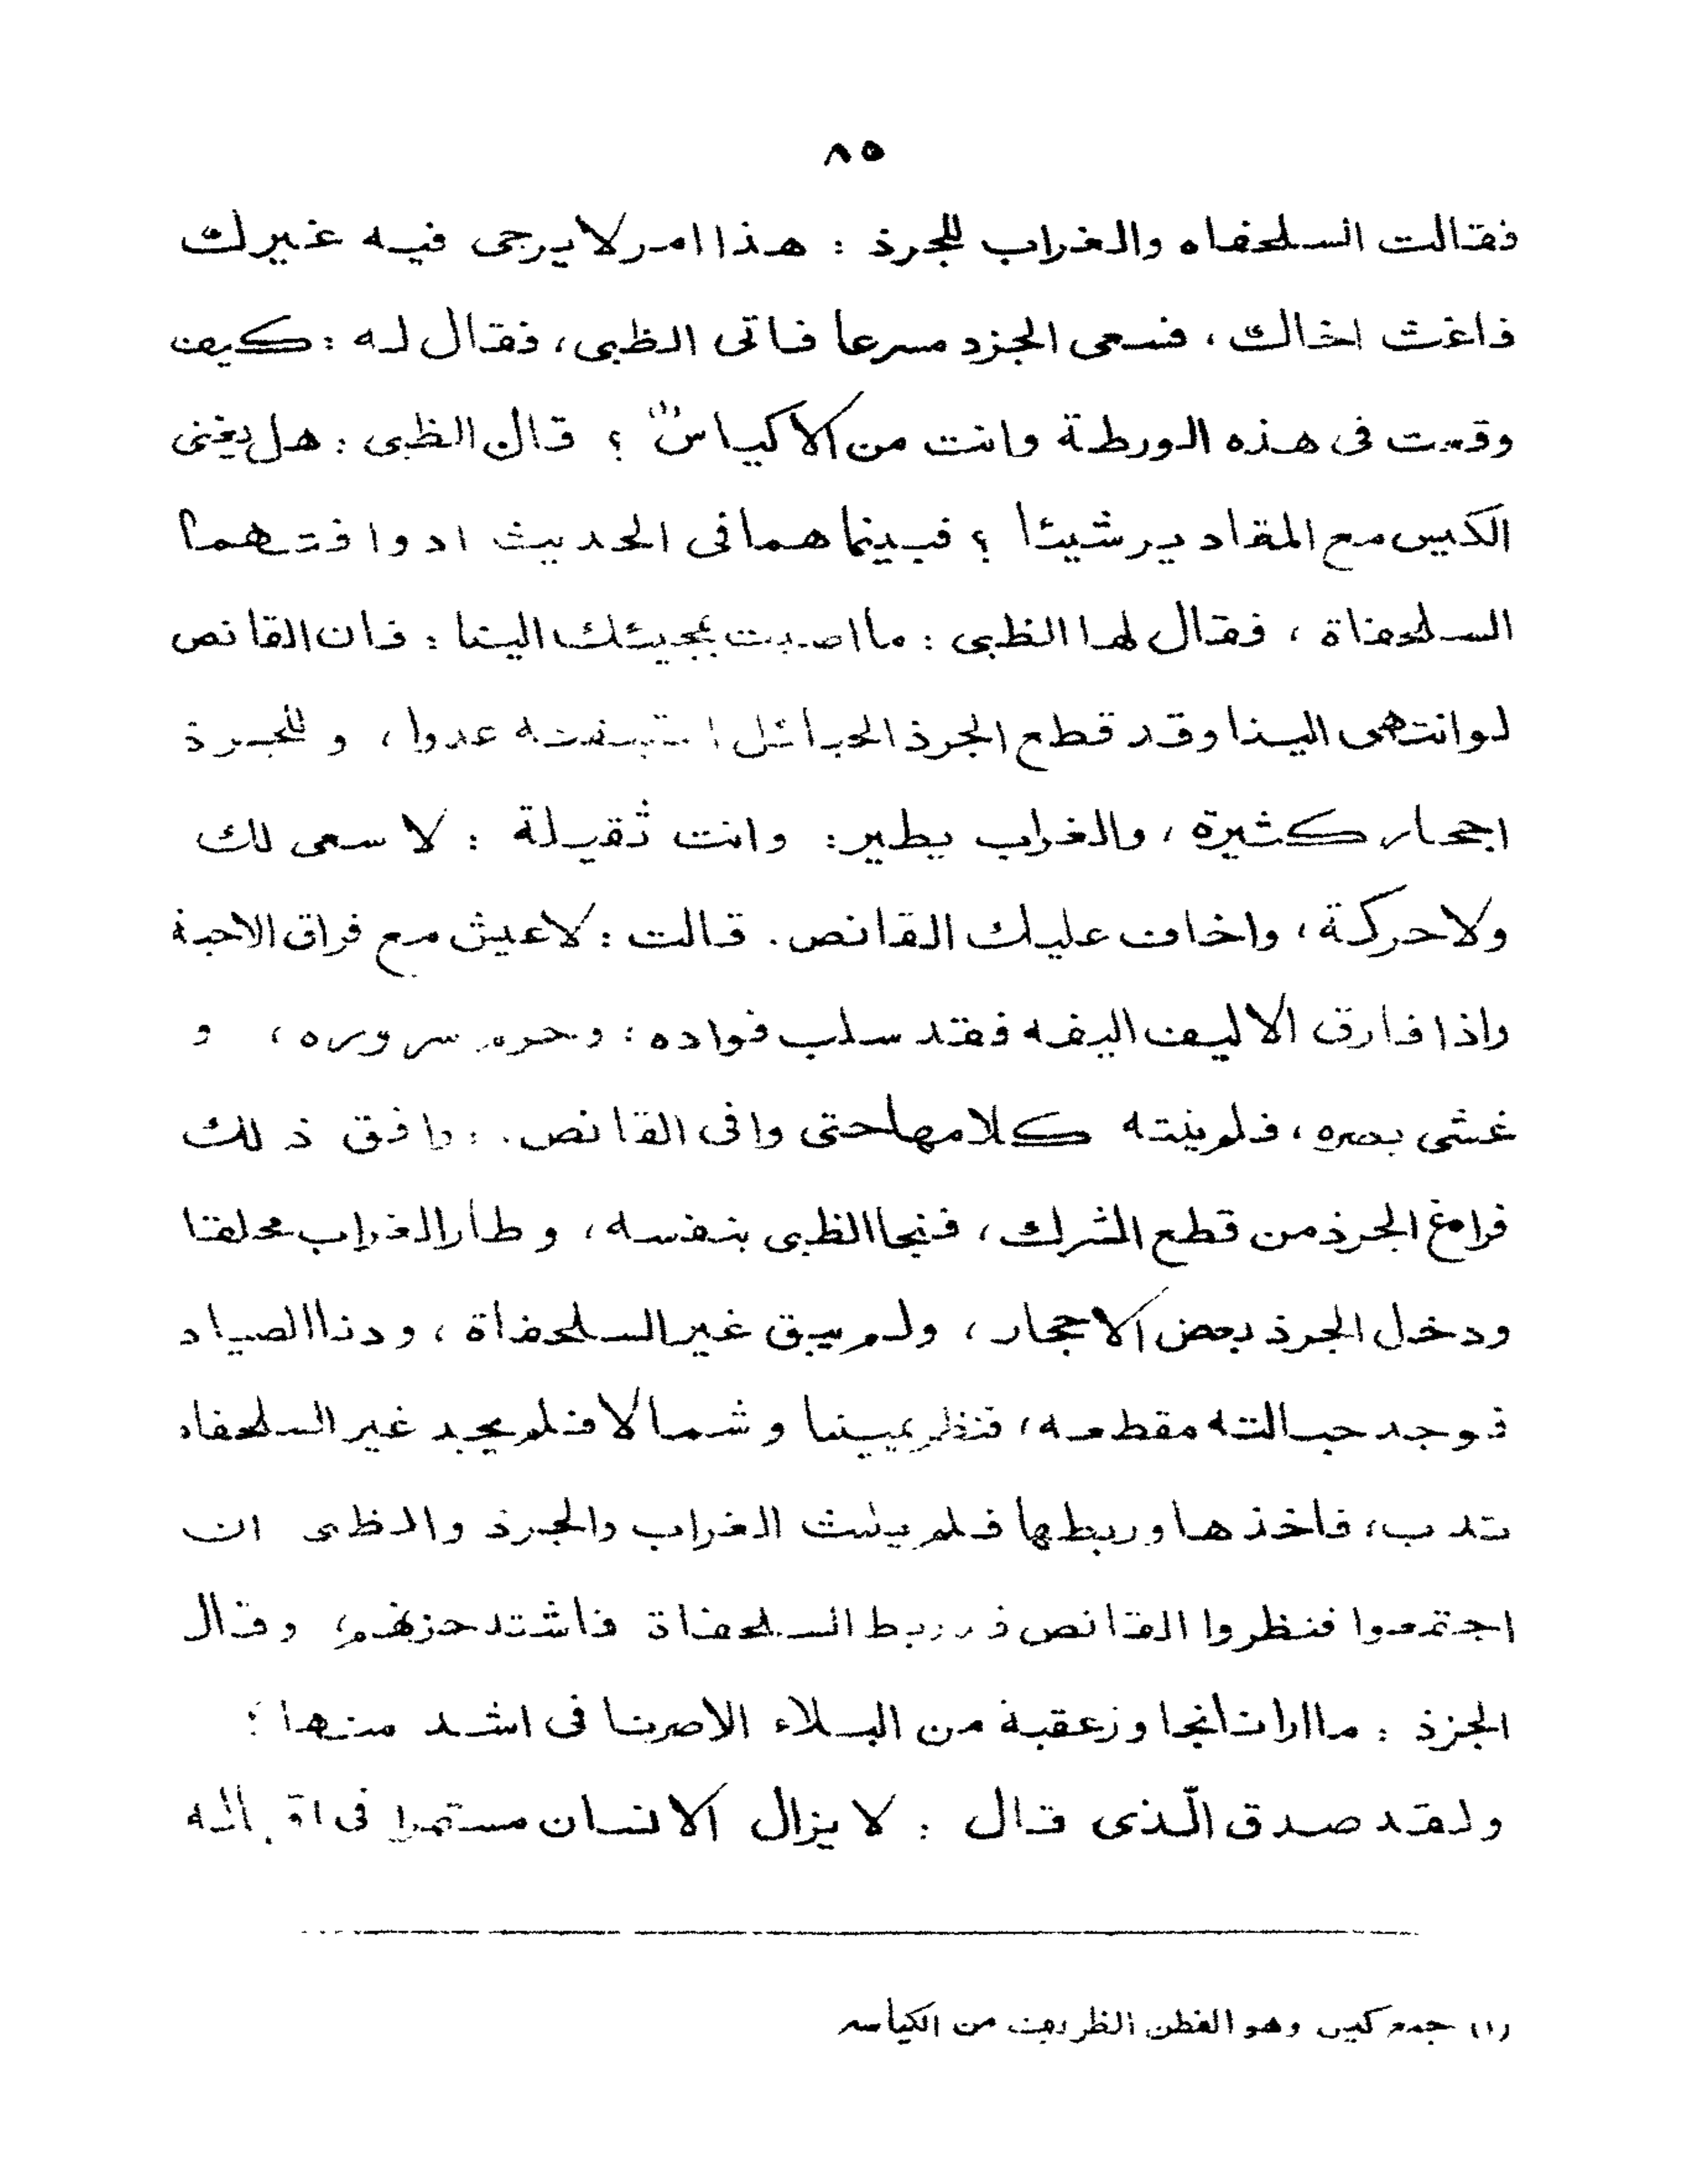 ٨٥
فقالت السلحفاه والغراب للجرذ : هذا امر لا يرجى فيه غيرك
فاغث اخاك ، فسعى الجزد مسرعا فاتى الظبى ، فقال له : كيف
وقعت فى هذه الورطة وانت من الاكياس (١) ؟ قال الظبى : هل يغنى
الكيس مع المقادير شيئا ؟ فبينما هما فى الحديث اد وافتهما
السلحفاة ، فقال لها الظبى : ما اصبت بمجيئك الينا : فان القانص
لو انتهى الينا وقد قطع الجرذ الحبائل عدوا ، و للجرذ
اجحار كثيرة ، والغراب يطير : وانت ثقيلة : لا سعى لك
ولا حركة ، واخاف عليك القانص . قالت : لا عيش مع فراق الاحبة
واذا فارق الاليف اليفه فقد سلب فواده : وحرم سروره ، و
غشى بصره ، فلم ينته كلامها حتى وافى القانص . ووافق ذلك
فراغ الجرذ من قطع الشرك ، فنجا الظبى بنفسه ، وطار الغراب محلقا
ودخل الجرذ بعض الاحجار ، ولم يبق غير السلحفاة ، ودنا الصياد
فوجد حبالته مقطعه ، فنظر يمينا وشمالا فلم يجد غير السلحفاه
تدب ، فاخذها وربطها فلم يلبث الغراب والجرذ والظبى ان
اجتمعوا فنظروا القانص ربط السلحفاة فاشتد حزنهم ، وقال
الجزذ : ما ارانا نجاوز عقبة من البلاء الا صرنا فى اشد منها :
ولقد صدق الّذى قال : لا يزال الانسان مستمرا فى
(١) جمع كيس وهو الفطن الظريف من الكياسه